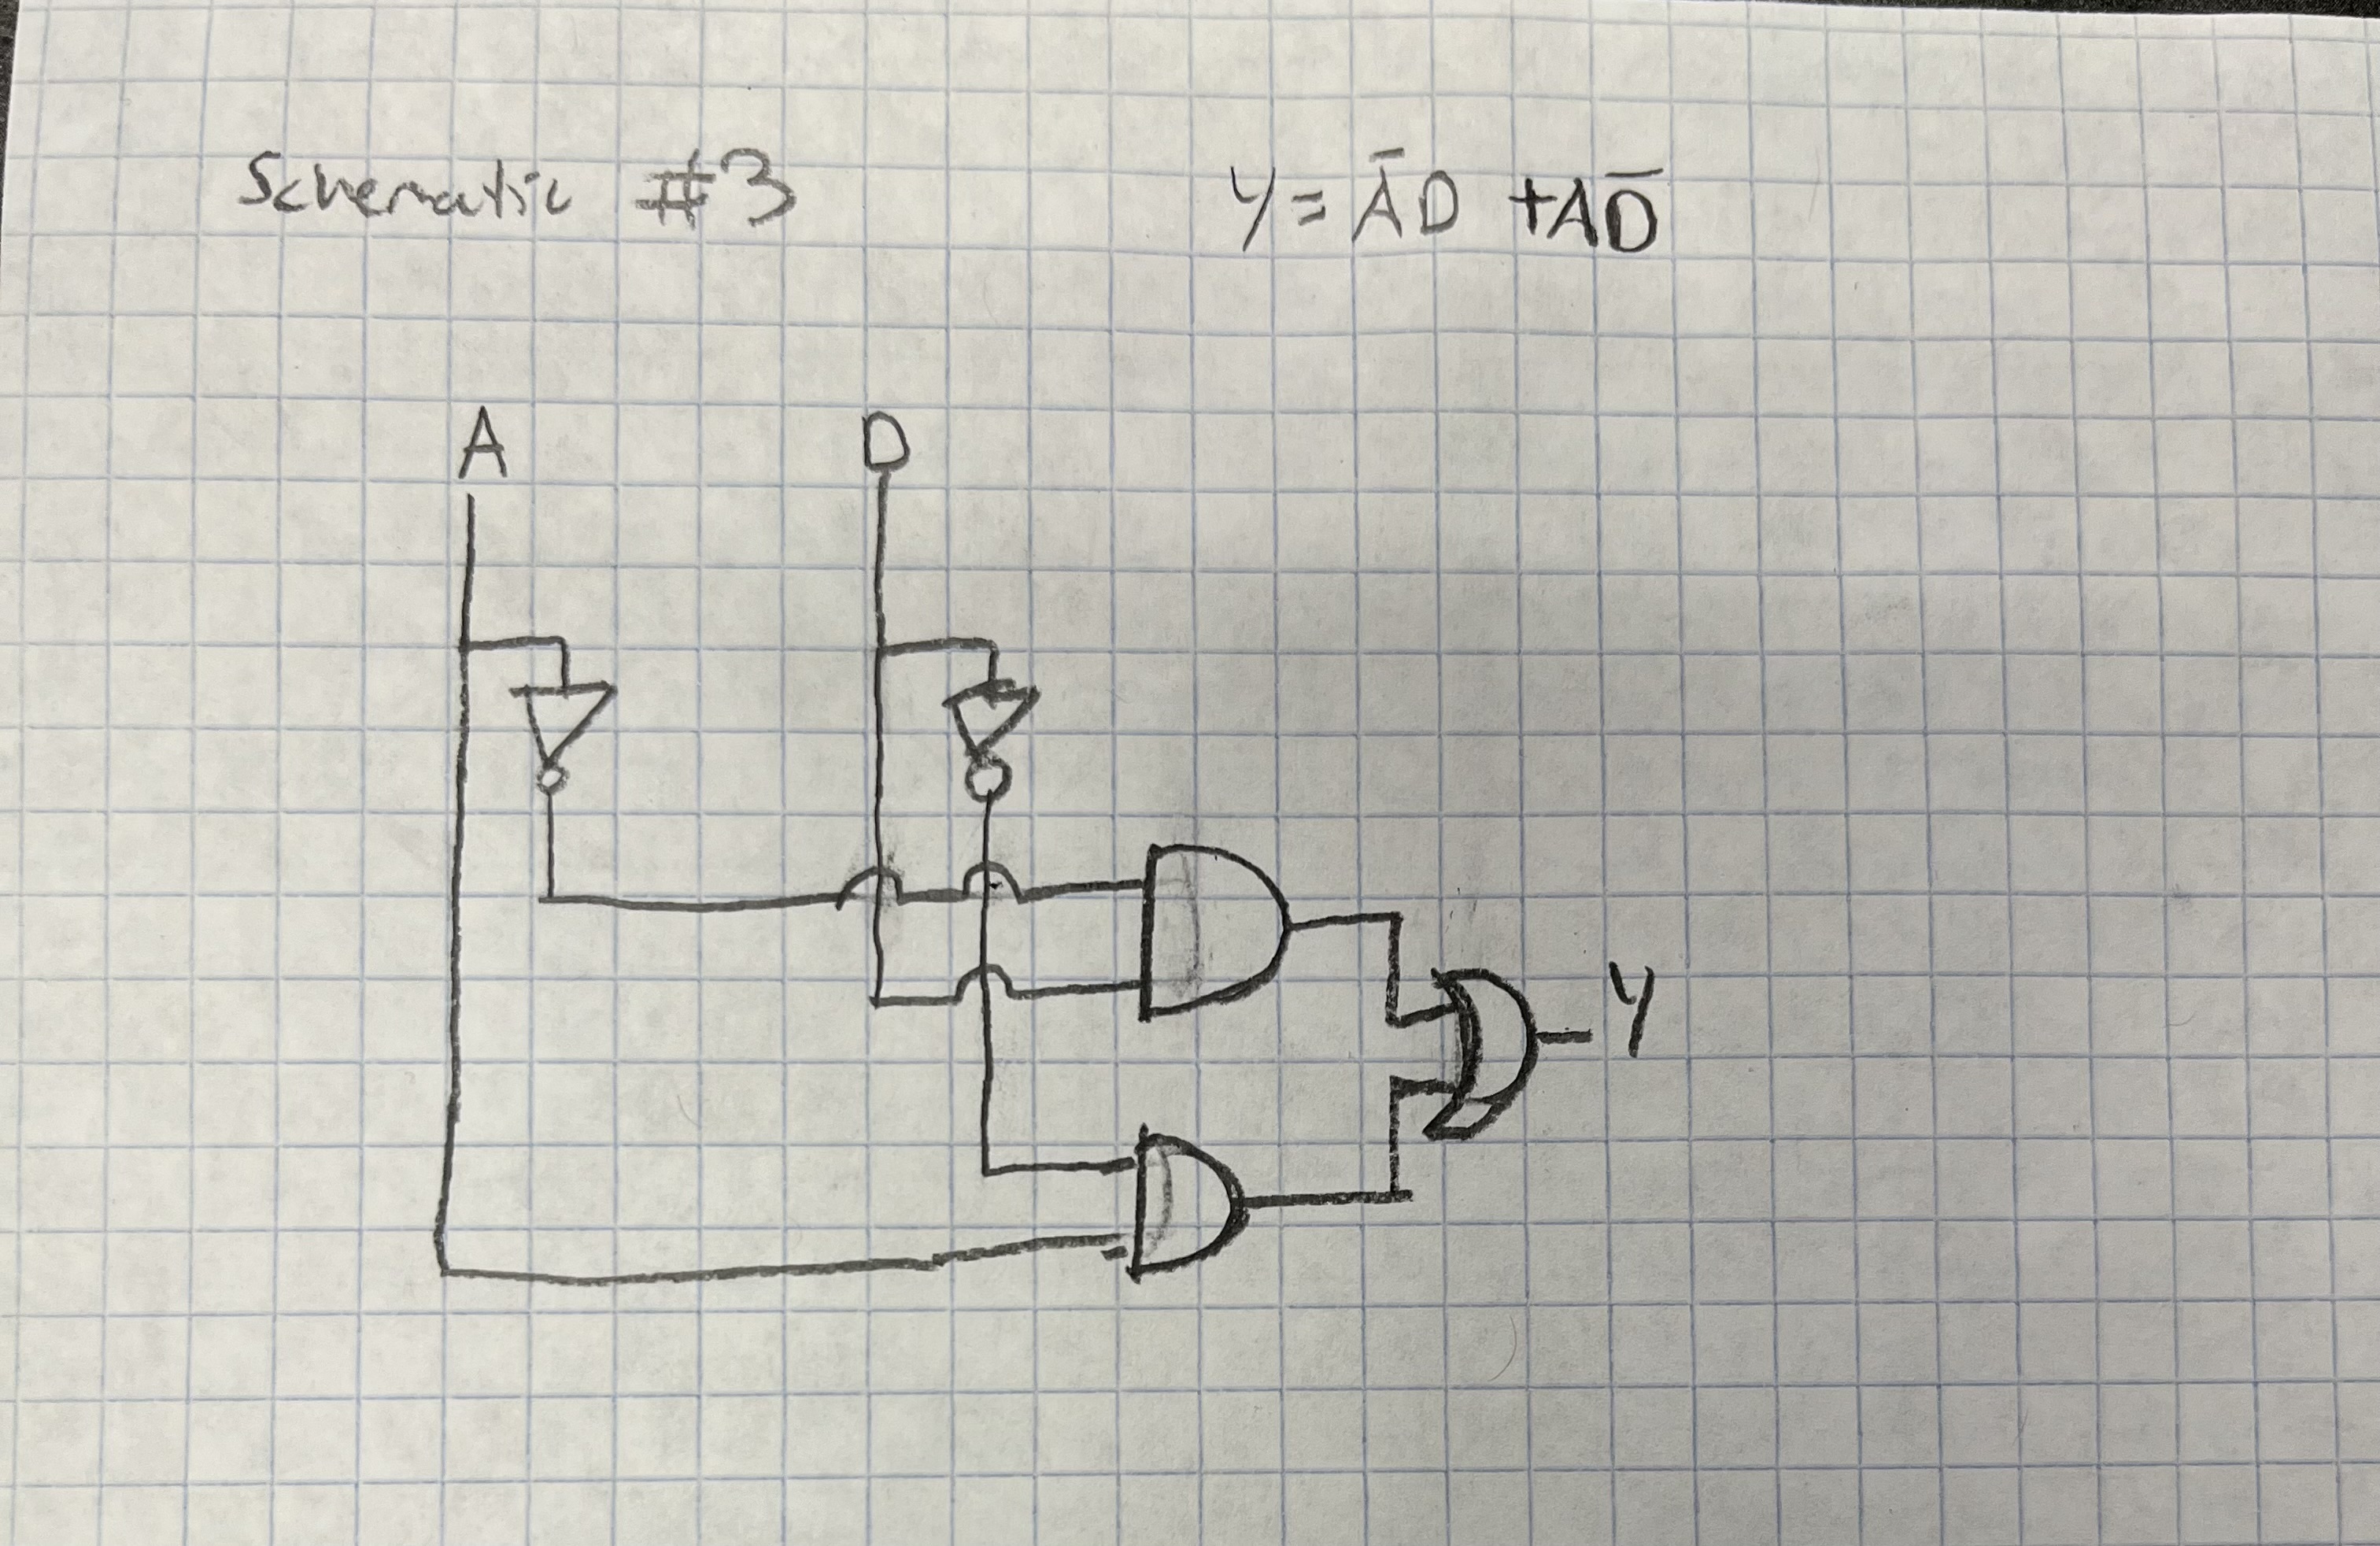 Schematic #3
Y = A̅D + AD̅
A
D
Y